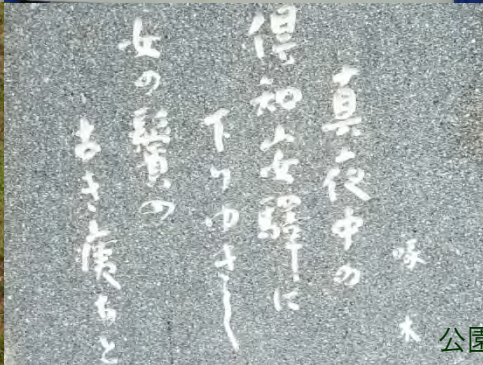 啄木
真夜中の
倶知安驛に
下りゆきし
女の鬢の
古き痍あと
公園